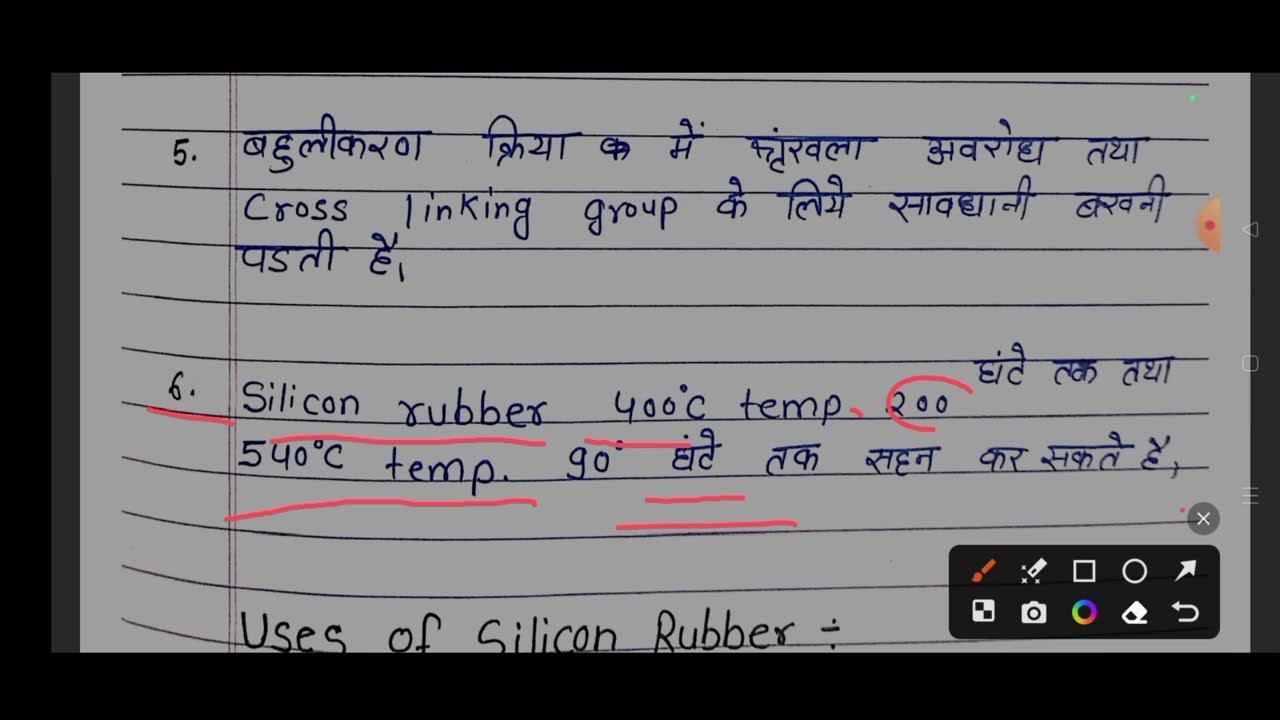 5. बहुलीकरण क्रिया क में श्रृंखला अवरोध तथा
Cross linking group के लिये सावधानी बरवनी
पडती है,
घंटे तक तथा
6. Silicon rubber 400°C temp. २००
540°C temp. 90° घंटे तक सहन कर सकते है,
Uses of Silicon Rubber ÷